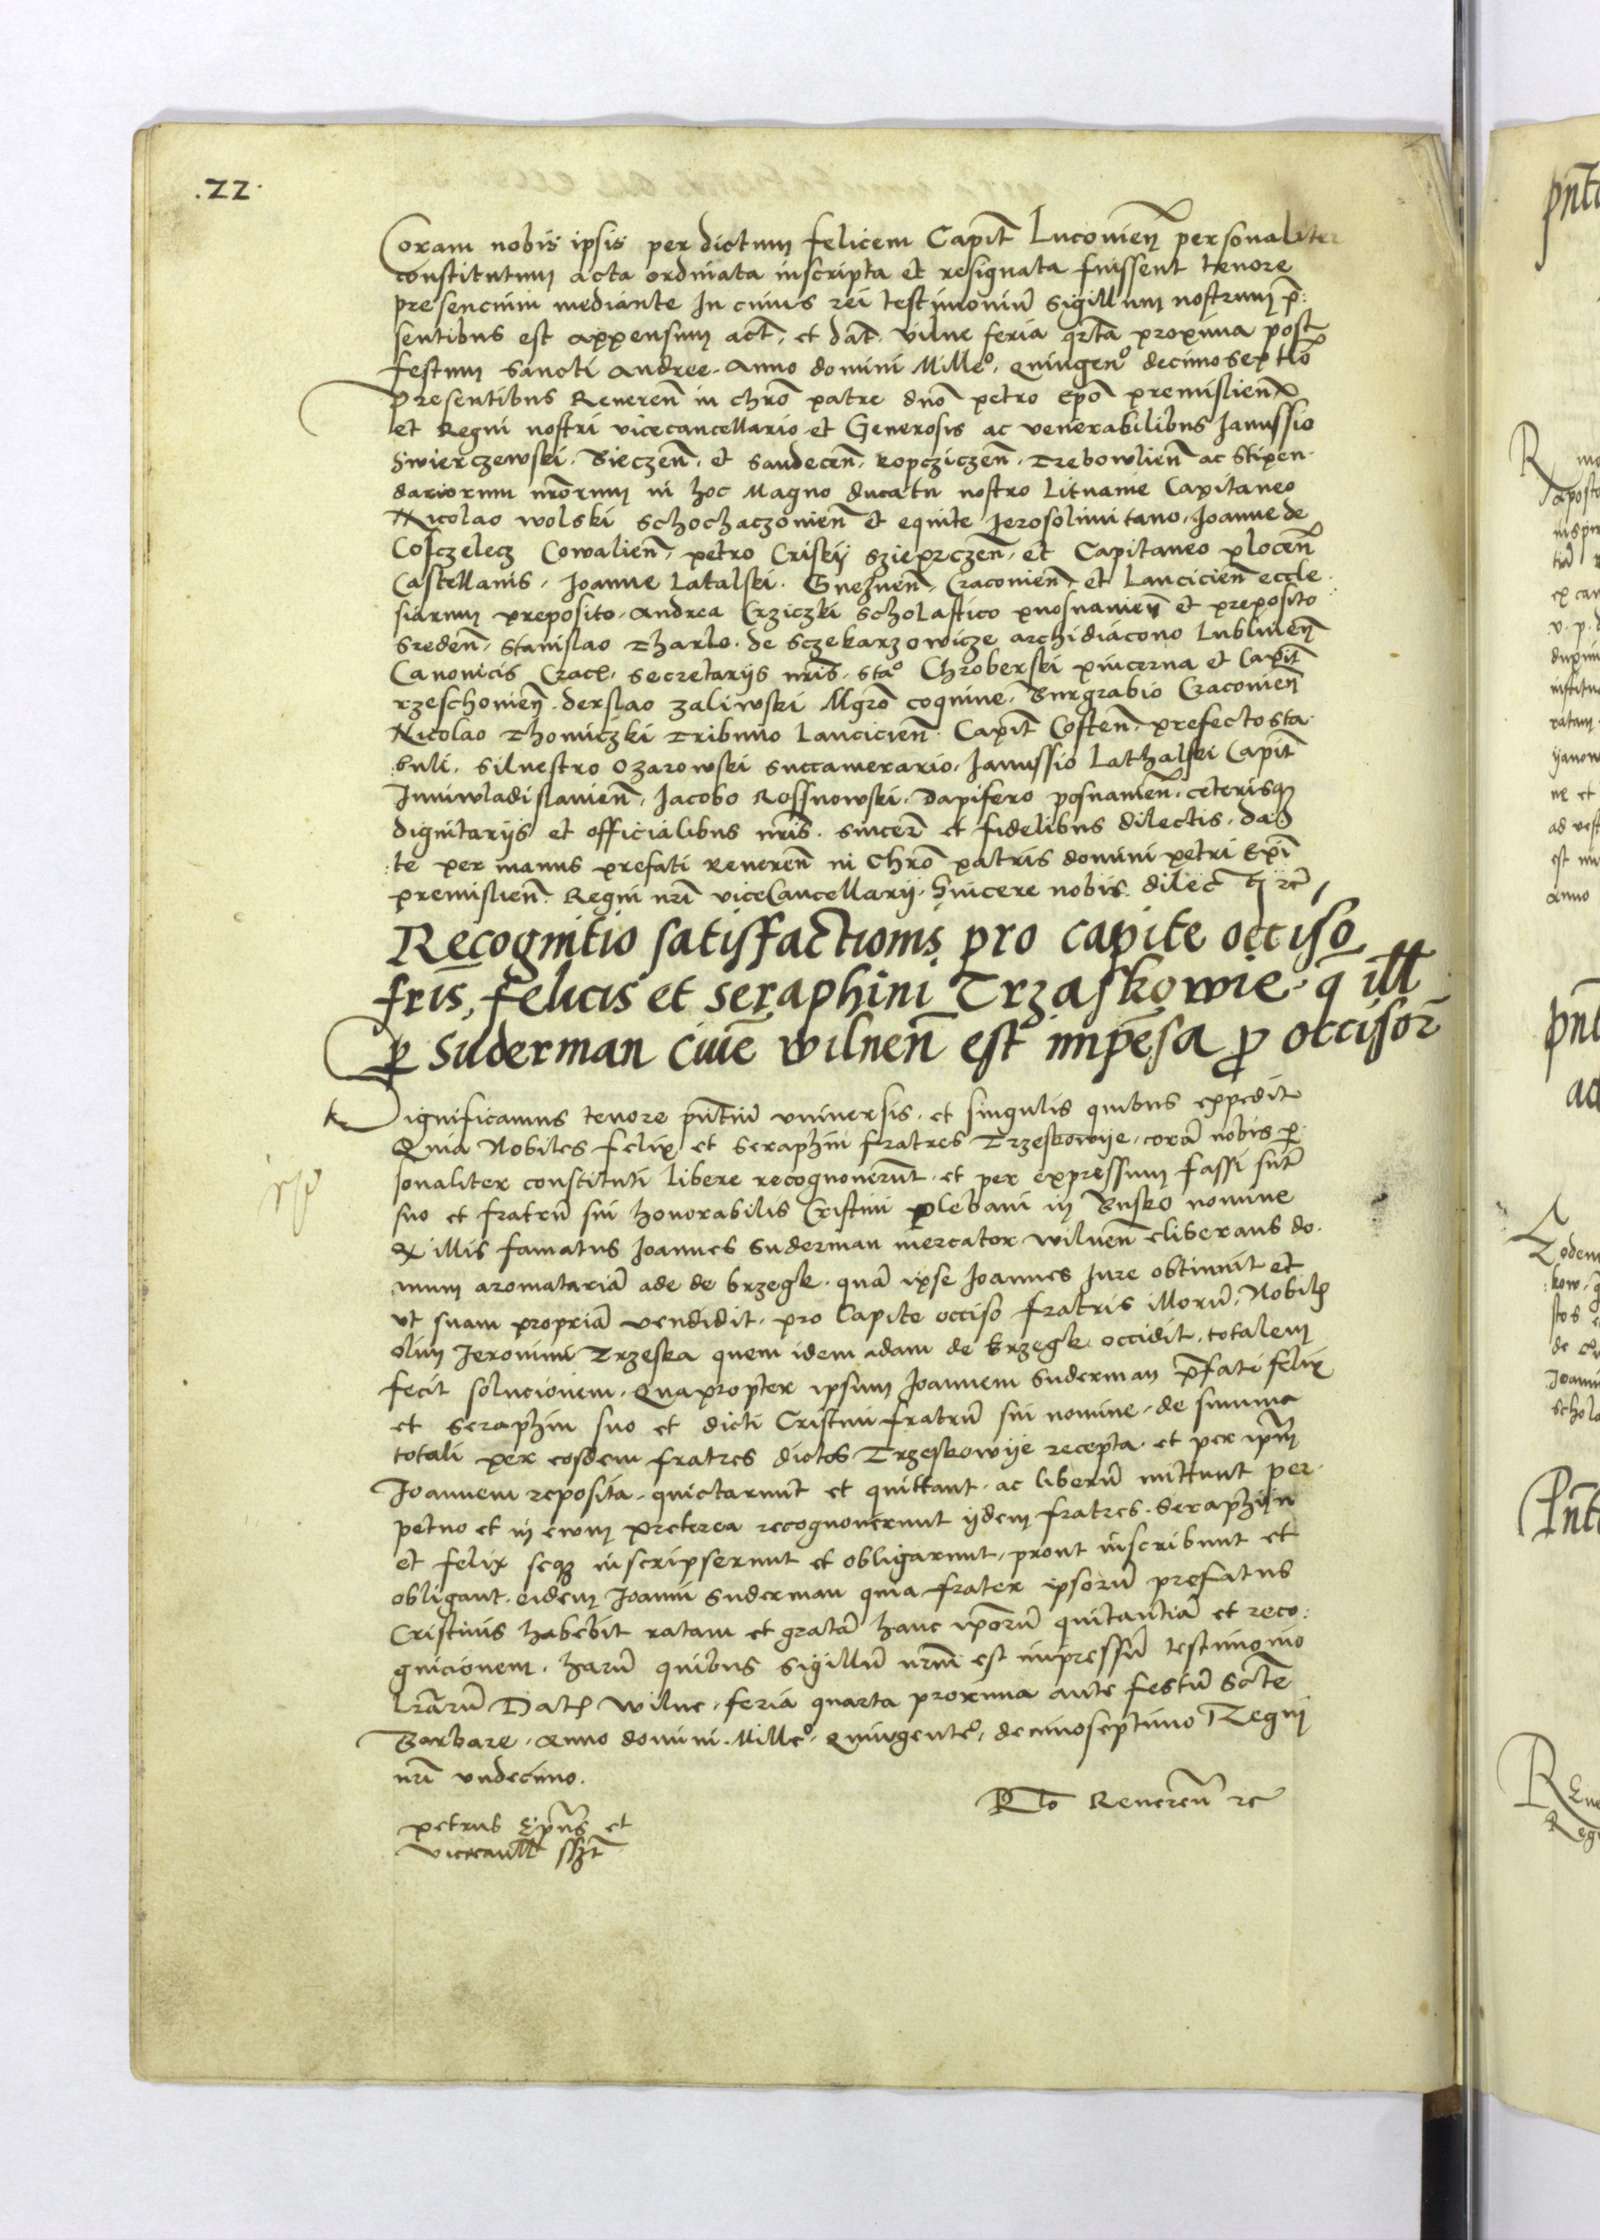 .22.
Coram nobis ipsis per dictum felicem Capit̄ Luconien̄ personaliter
constitutum acta ordinata inscripta et resignata fuissent tenore
presencium mediante In cuius rei testimoniū sigillum nostrum p̄:
sentibus est appensum act̄. et dat̄. vilne feria qr̄ta proxima post
festum sancti Andree. Anno domini Milleº. Quingenº decimoseptīo
Presentibus Reueren̄ in chr̄o patre dn̄o petro Ep̄o premislien̄
et Regni nostri vicecancellario et Generosis ac venerabilibus Janussio
Swierczewski. Bieczen̄. et Sandecen̄. Ropcziczen̄. Trebowlien̄ ac stipen-
dariorum nr̄orum in hoc Magno ducatu nostro Lituanie Capitaneo
Nicolao wolski schochaczouien̄ et equite Jerosolimitano. Joanne de
Cosczelecz Cowalien̄. petro Criskij szieprczen̄. et Capitaneo plocen̄
Castellanis. Joanne Latalski. Gneznen̄. Craconien̄. et Lancicien̄ eccle:
siarum preposito. Andrea Crziczki scholastico posnanien̄ et preposito
sreden̄. stanislao Tharlo. de sczekarzowicze archidiacono Lublinen̄
Canonicis Crac. secretarijs nr̄is. staº Chroberski pincerna et Capit̄
rzeschouien̄. derslao zaliwski Mgr̄o coquine. Burgrabio Craconien̄
Nicolao Thomiczki Tribuno Lancicien̄. Capit̄ Costen̄. prefecto sta-
buli. siluestro Ozarowski succamerario. Janussio Lathalski Capit̄
Juniwladislauien̄. Jacobo Rossnowski. Dapifero posnanien̄. ceterisq
dignitarijs et officialibus nr̄is. sincer̄ et fidelibus dilectis. Da-
:te per manus prefati reueren̄ in Chr̄o patris domini petri Ep̄i
premislien̄. Regni nr̄i viceCancellarij. Sincere nobis dilec̄ti rc̄
Recognitio satisfactionis pro capite occiso
fris, felicis et seraphini Trzaskowie. q̄ ill
p Suderman ciuē wilnen̄ est impēsa p occisor̄
Significamus tenore pn̄tiū vniuersis. et singulis quibus expedit
Quia Nobiles felix et seraphin fratres Trzeskowije. corā nobis p̄
sonaliter constituti libere recognouerūt. et per expressum fassi sūt
suo et fratrū sui honorabilis Cristini plebani in Busko nomine
Q illis famatus Joannes Suderman mercator wilnen̄ eliberans do-
mum aromatariā ade de brzegk. quā ipse Joannes Jure obtinuit et
vt suam propriā vendidit. pro Capite occiso fratris illorū. Nobilis
olim Jeronimi Trzeska quem idem adam de brzegk occidit. totalem
fecit solucionem. Quapropter ipsum Joannem Suderman p̄fati felix
et seraphin suo et dicti Cristini fratrū sui nomine. de summa
totali per eosdem fratres dictos Trzeskowije recepta. et per ip̄m
Joannem reposita. quictarunt et quittant. ac liberū mittunt per-
petuo et in ewum preterea recognouerunt ijdem fratres. seraphin
et felix seq inscripserunt et obligarunt. prout inscribunt et
obligant. eidem Joanni Suderman quia frater ipsorū prefatus
Cristinus habebit ratam et gratā hanc ip̄orū quitantiā et reco:
gnicionem. harū quibus sigillū nr̄m est impressū testimonio
Lr̄arū Dat̄ Wilne. feria quarta proxima ante festū Sctē
Barbare. anno domini. Milleº. Quingenteº. decimoseptimo Regni
nr̄i vndecimo.
R̄to Reueren̄ rc
petrus Ep̄us et
vicecanll sszt